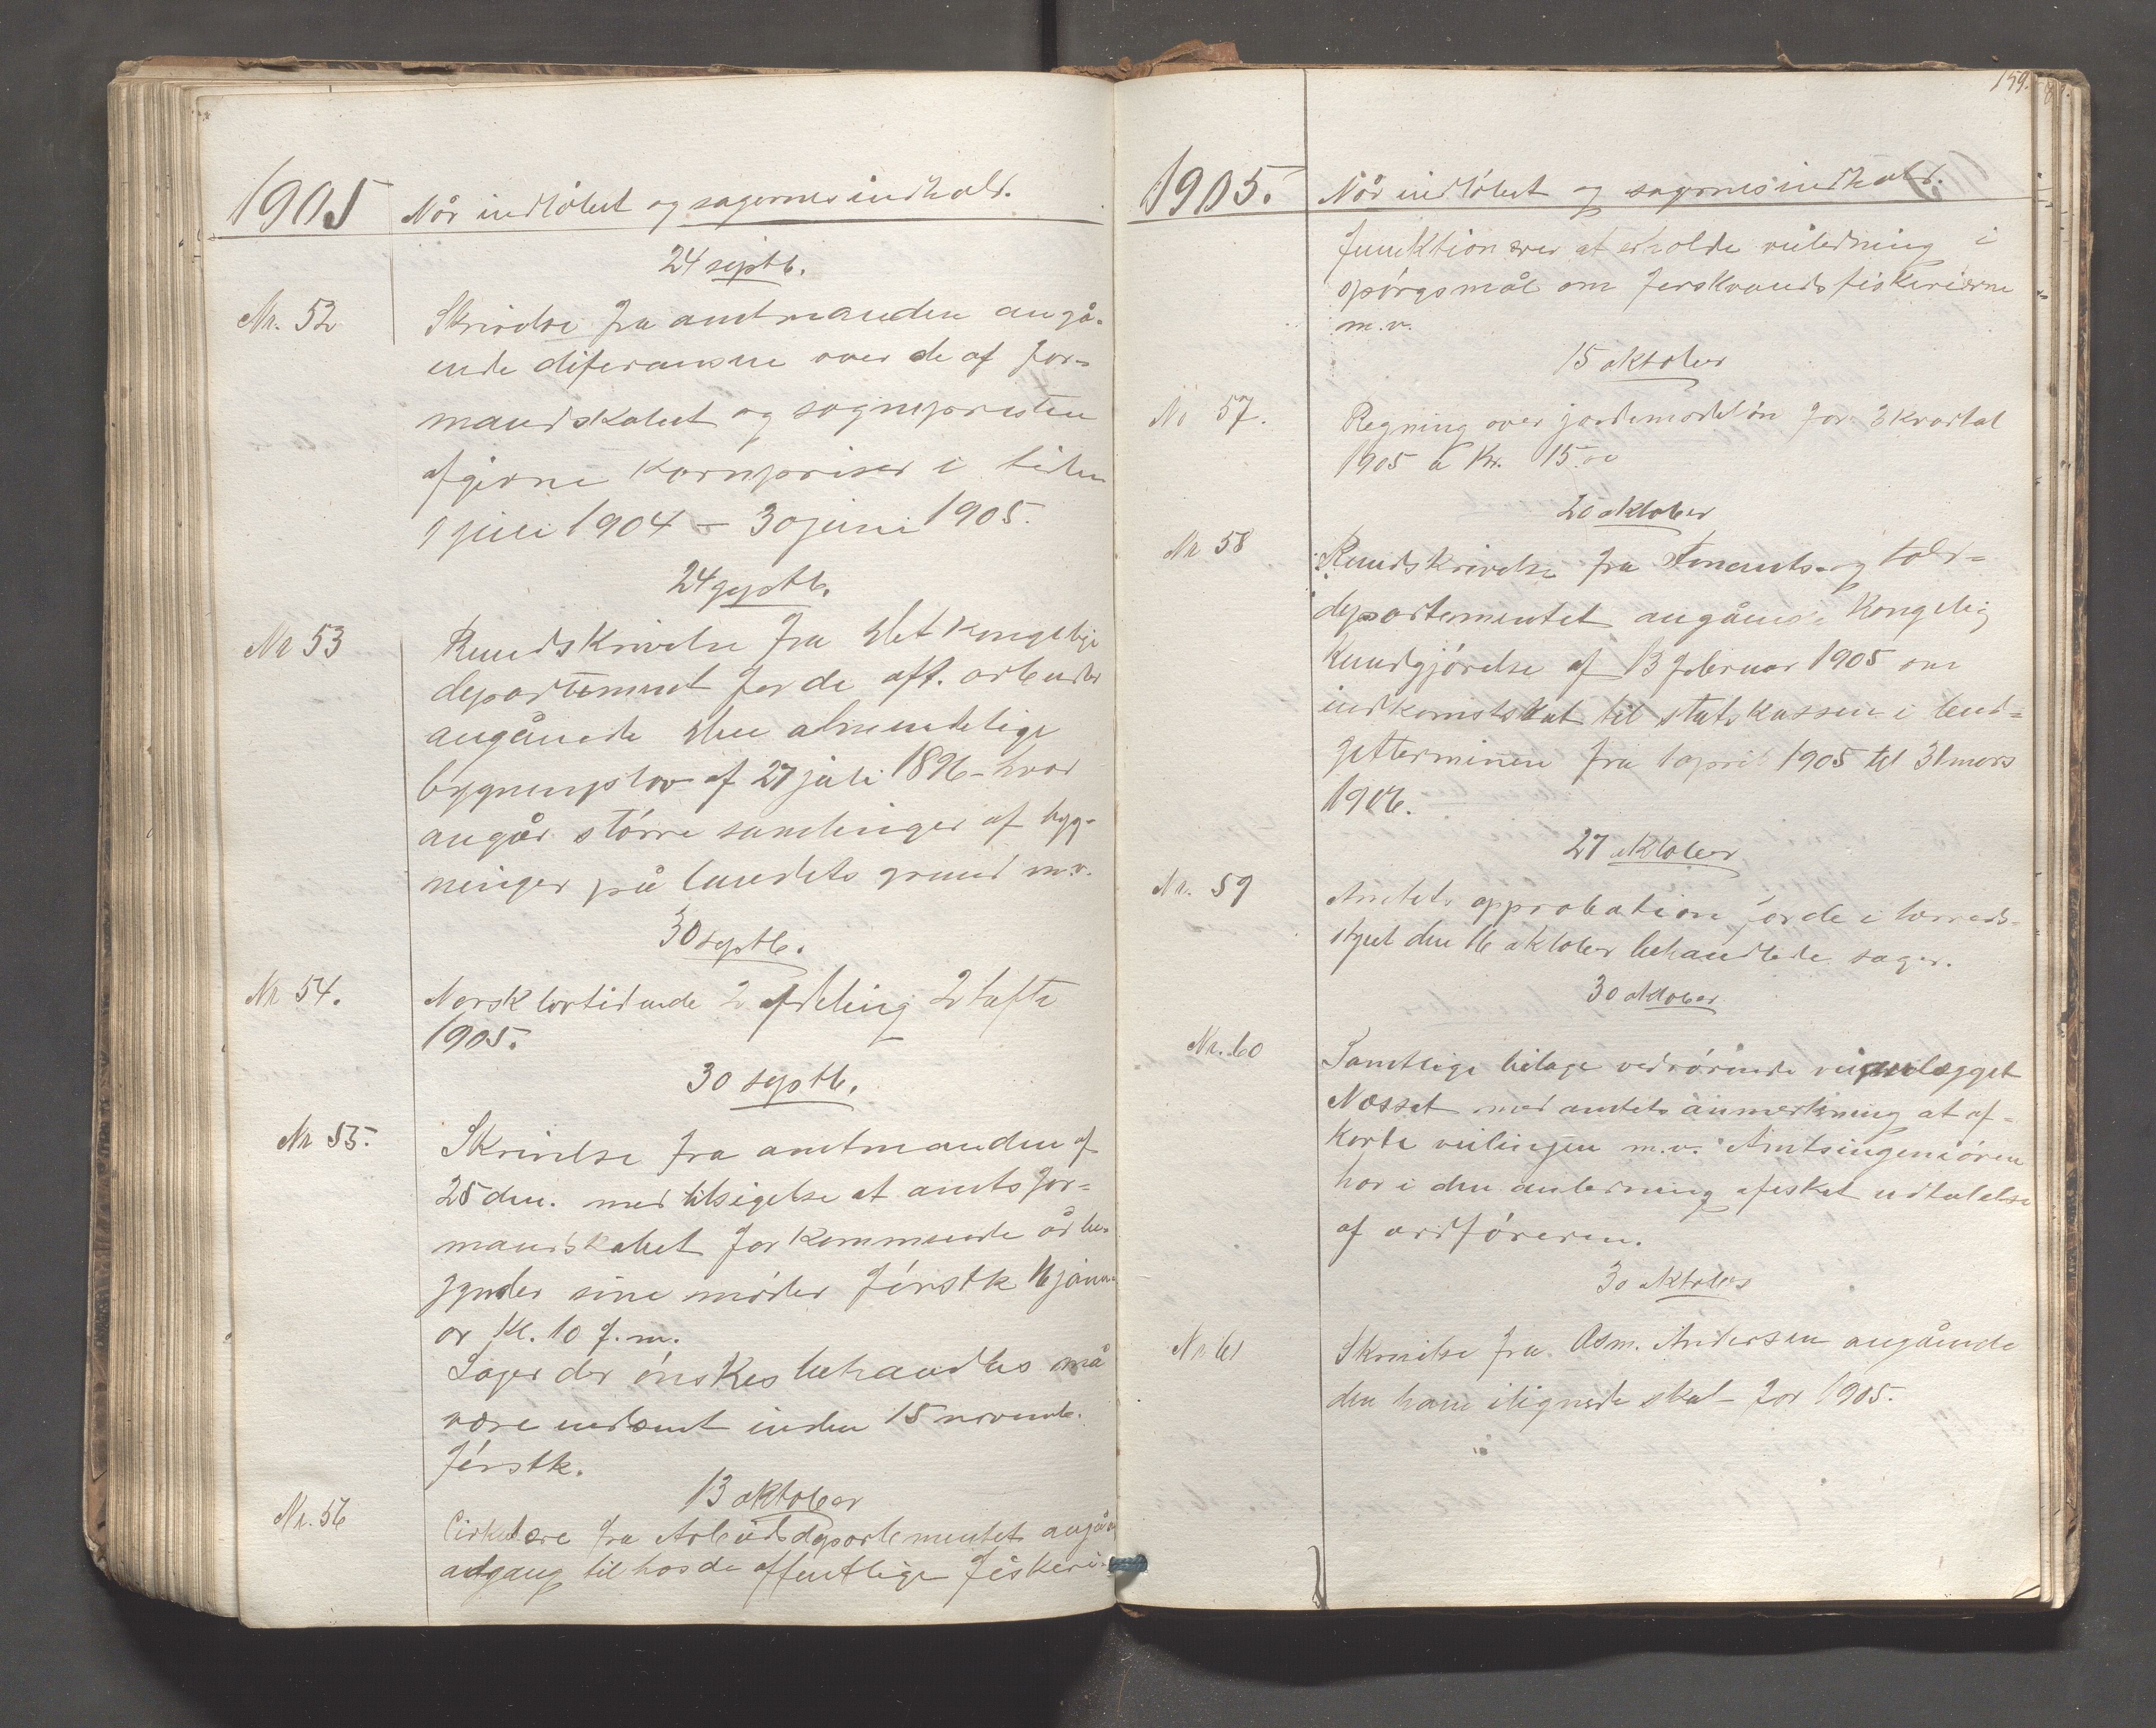 1905 Når indløbet og sagernes indhold.
24 septb.
Nr. 52 Skrivelse fra amtmanden angå-
ende diferansene over de af for-
mandskabet og sognepresten
afgivne kornpriser i tiden
1 juli 1904 - 30 juni 1905.
24 septb.
Nr 53 Rundskrivelse fra det kongelige
departement for de off. arbeider
angående den almindelige
bygningslov af 27 juli 1896 - hvad
angår større samlinger af byg-
ninger på landets grund m.v.
30 septb.
Nr 54. Norsk lovtidende 2 afdeling 2 hæfte
1905.
30 septb.
Nr 55. Skrivelse fra amtmanden af
25 den. med tilsigelse at amtsfor-
mandskabet for kommende år be-
gynder sine møder førstk 16 janu-
ar Kl. 10 f.m.
Sager der ønskes behandles må
være indsent inden 15 novemb.
førstk.
13 oktober
Nr. 56 Cirkulære fra Arbeidsdepartementet angåen
adgang til hos de offentlige fiskeri-
159.
1905. Når indløbet og sagernes indhold.
funktionærer at erholde veiledning i
spørgsmål om ferskvandsfiskerierne
m.v.
15 oktober
No 57. Regning over jordemoderløn for 3 kvartal
1905 a Kr. 15.00
20 oktober
Nr 58 Rundskrivelse fra Finants- og told-
departementet angående Kongelig
Kundgjørelse af 13 februar 1905 om
indkomstskat til statskassen i bud-
getterminen fra 1 april 1905 til 31 mars
1906.
27 oktober
Nr. 59 Amtets approbation for de i herreds-
styret den 16 oktober behandlede sager.
30 oktober
Nr. 60 Samtlige bilage vedrørende veianlægget
Næsset med amtets anmerkning at af-
korte veilinjen m.v. Amtsingeniøren
har i den anledning æsket udtalelse
af ordføreren.
30 oktober
Nr 61 Skrivelse fra Asm. Andersen angående
den ham ilignede skat for 1905.